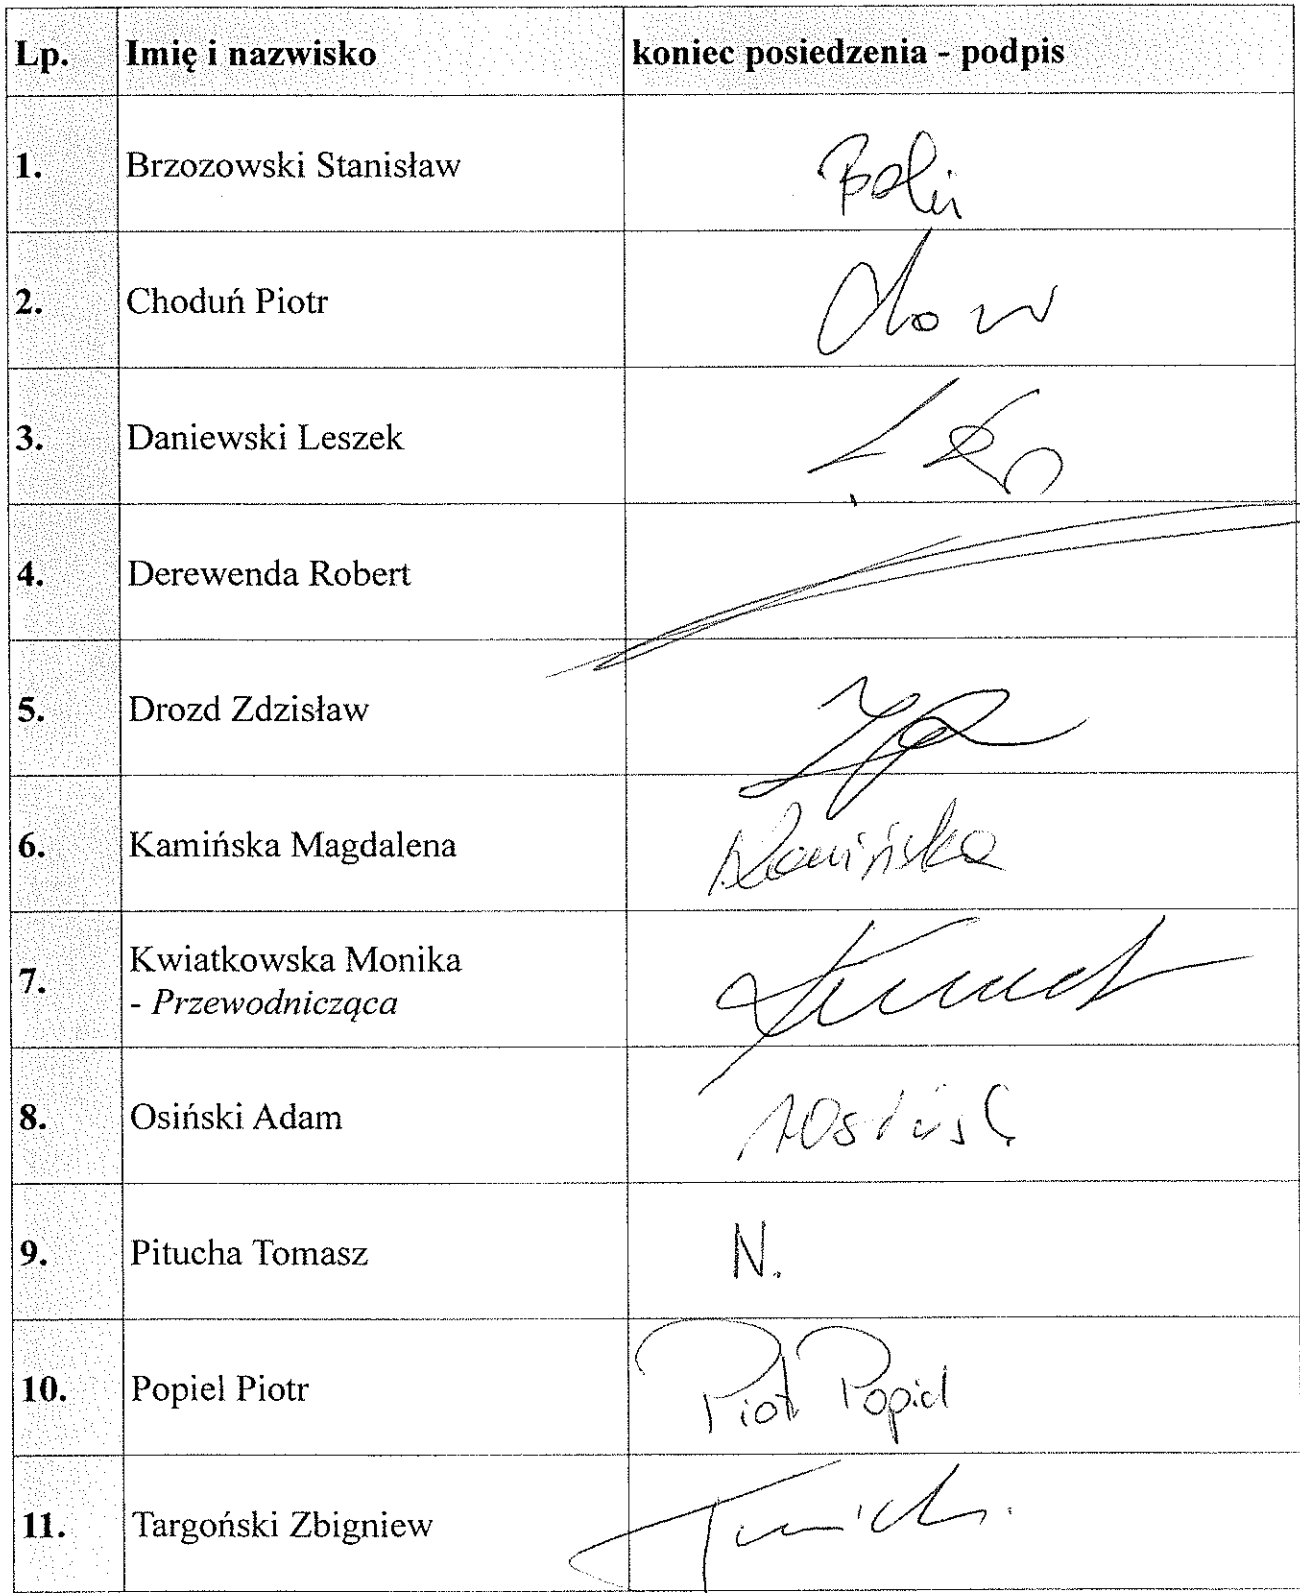 Lp. Imię i nazwisko koniec posiedzenia - podpis
1. Brzozowski Stanisław
2. Choduń Piotr
3. Daniewski Leszek
4. Derewenda Robert
5. Drozd Zdzisław
6. Kamińska Magdalena Kamińska
7. Kwiatkowska Monika
- Przewodnicząca
8. Osiński Adam
9. Pitucha Tomasz N.
10. Popiel Piotr Piotr Popiel
11. Targoński Zbigniew